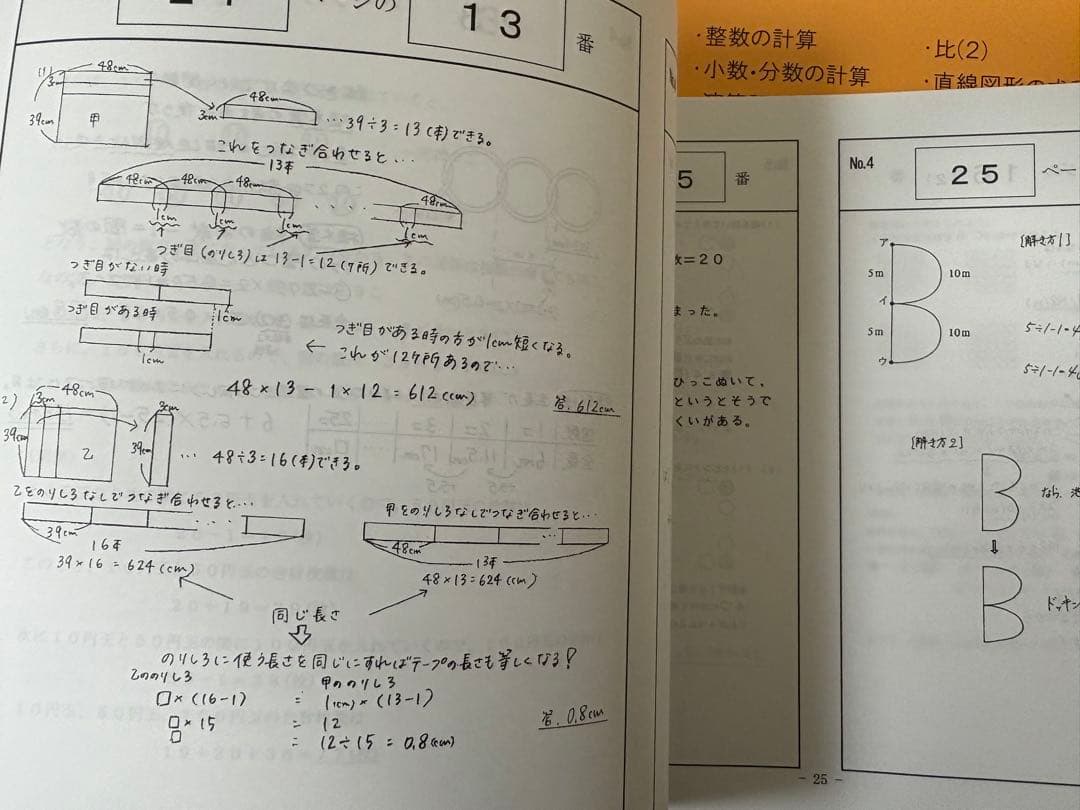 ンの
13
番
(1)
48cm
3cm
39cm
甲
48cm
3cm
…39÷3=13(本)できる。
これをつなぎ合わせると…
13本
48cm
48cm
48cm
48cm
1cm
1cm
1cm
1cm
つぎ目(のりしろ)は 13-1=12(ヶ所)できる。
つぎ目がない時
1cm
つぎ目がある時
1cm
← つぎ目がある時の方が1cm短くなる。
これが12ヶ所あるので…
48×13 - 1×12=612(cm)
答. 612cm
2)
48cm
3cm
39cm
乙
3cm
39cm
… 48÷3=16(本)できる。
乙をのりしろなしでつなぎ合わせると…
39cm
16本
39×16=624(cm)
甲をのりしろなしでつなぎ合わせると…
48cm
13本
48×13=624(cm)
同じ長さ
のりしろに使う長さを同じにすればテープの長さも等しくなる!
乙ののりしろ
甲ののりしろ
□×(16-1) = 1(cm)×(13-1)
□×15 = 12
□ = 12÷15=0.8(cm)
答. 0.8cm
・整数の計算
・小数・分数の計算
・比(2)
・直線図形の
5
番
数=20
まった。
ひっこぬいて、
というとそうで
くいがある。
No.4
25
ペー
[解き方1]
ア
5m
10m
イ
5m
10m
ウ
5÷1-1=4
5÷1-1=4
[解き方2]
なら、
⇩
ドッキン
- 25 -